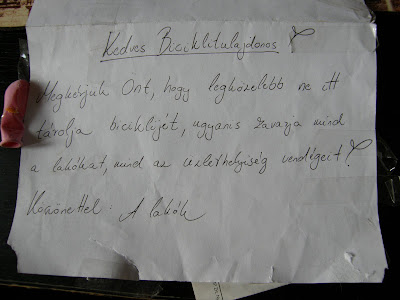 Kedves Biciklitulajdonos!
Megkérjük Önt, hogy legközelebb ne itt
tárolja biciklijét, ugyanis zavarja mind
a lakókat, mind az üzlethelyiség vendégeit!
Köszönettel: A lakók